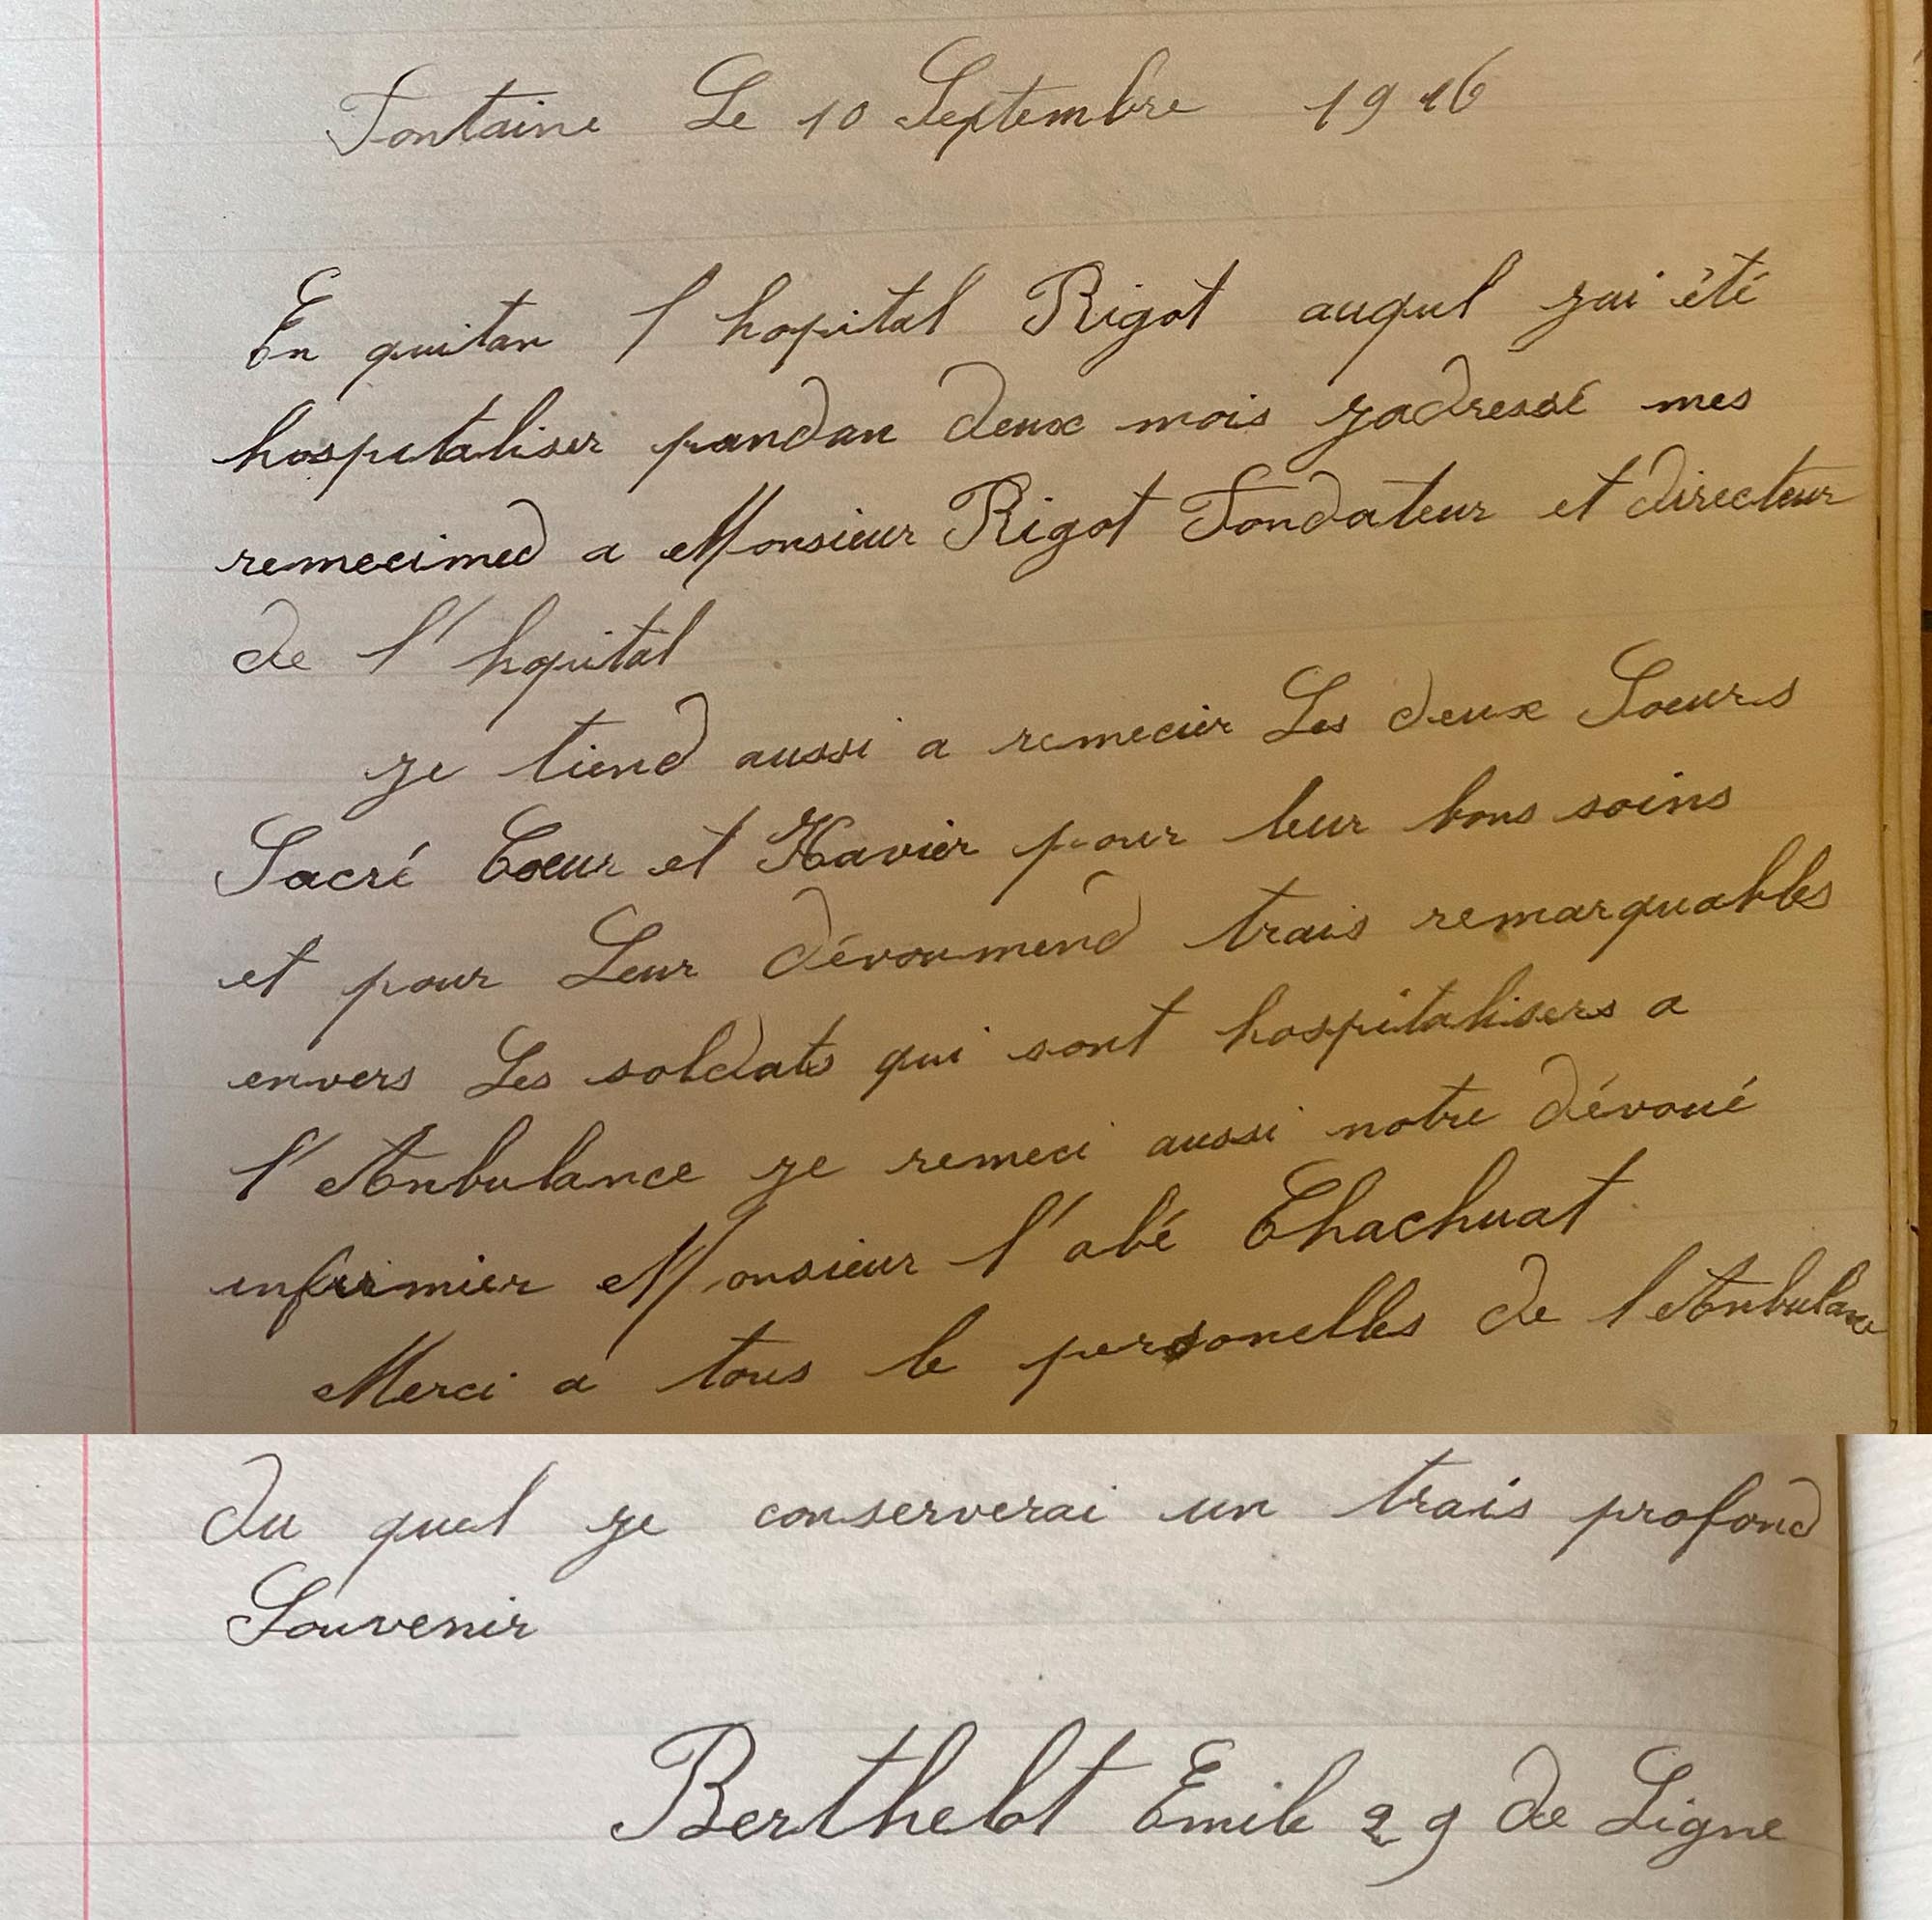 Fontaine Le 10 Septembre 1916
En quitan l hopital Rigot auqul jai été
hospitaliser pandan deux mois jadressé mes
remecimed a Monsieur Rigot Fondateur et directeur
de l'hopital
je tiend aussi a remecier Les deux Soeurs
Sacré Coeur et Xavier pour leur bons soins
et pour Leur dévoumend trais remarquables
envers Les soldats qui sont hospitalisers a
l'Anbulance je remeci aussi notre dévoué
infirmier Monsieur l'abé Chachuat
Merci a tous le personelles de l Anbulance
du quel je conserverai un trais profond
Souvenir
Berthelot Emile 29 de Ligne